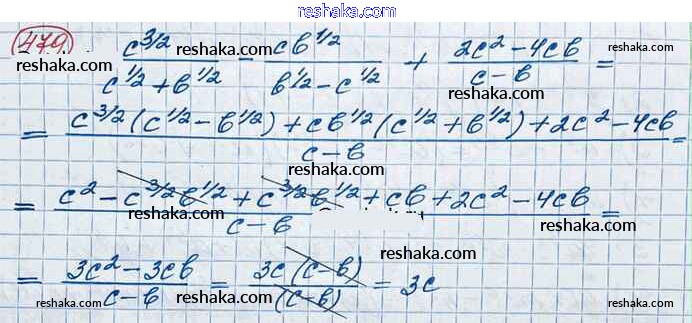 reshaka.com
479. c^{3/2}/(c^{1/2} + b^{1/2}) - cb^{1/2}/(b^{1/2} - c^{1/2}) + (2c^2 - 4cb)/(c - b) =
reshaka.com reshaka.com reshaka.com reshaka.com
= (c^{3/2}(c^{1/2} - b^{1/2}) + cb^{1/2}(c^{1/2} + b^{1/2}) + 2c^2 - 4cb)/(c - b) =
reshaka.com reshaka.com
= (c^2 - c^{3/2}b^{1/2} + c^{3/2}b^{1/2} + cb + 2c^2 - 4cb)/(c - b) =
reshaka.com reshaka.com
= (3c^2 - 3cb)/(c - b) = 3c(c - b)/(c - b) = 3c
reshaka.com reshaka.com reshaka.com
reshaka.com